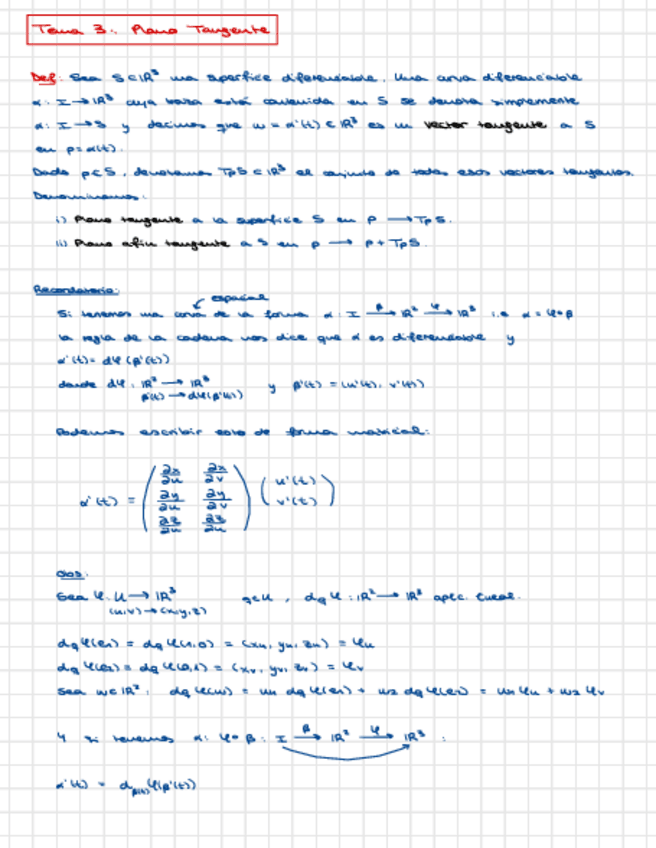 Tema 3: Plano Tangente
Def: Sea S⊂ℝ³ una superficie diferenciable. Una curva diferenciable
α: I → ℝ³ cuya traza está contenida en S se denota simplemente
α: I → S y decimos que w = α'(t) ∈ ℝ³ es un vector tangente a S
en p = α(t).
Dado p∈S, denotamos TpS ⊂ ℝ³ al conjunto de todos esos vectores tangentes.
Denominamos:
i) Plano tangente a la superficie S en p → TpS.
ii) Plano afín tangente a S en p → p + TpS.
Recordatorio:
espacial
Si tenemos una curva de la forma α: I →β ℝ² →φ ℝ³ i.e α = φ∘β
la regla de la cadena nos dice que α es diferenciable y
α'(t) = dφ(β'(t))
donde dφ: ℝ² → ℝ³ y β'(t) = (u'(t), v'(t))
β'(t) → dφ(β'(t))
Podemos escribir esto de forma matricial:
α'(t) = ( ∂x/∂u ∂x/∂v ) ( u'(t) )
( ∂y/∂u ∂y/∂v ) ( v'(t) )
( ∂z/∂u ∂z/∂u )
Obs:
Sea φ: U → ℝ³ q∈U, dqφ: ℝ² → ℝ³ aplic. lineal.
(u,v) → (x,y,z)
dqφ(e₁) = dqφ(1,0) = (xu, yu, zu) = φu
dqφ(e₂) = dqφ(0,1) = (xv, yv, zv) = φv
Sea w∈ℝ²: dqφ(w) = w₁ dqφ(e₁) + w₂ dqφ(e₂) = w₁φu + w₂φv
Y si tenemos α: φ∘β: I →β ℝ² →φ ℝ³ :
α'(t) = dβ(t)φ(β'(t))